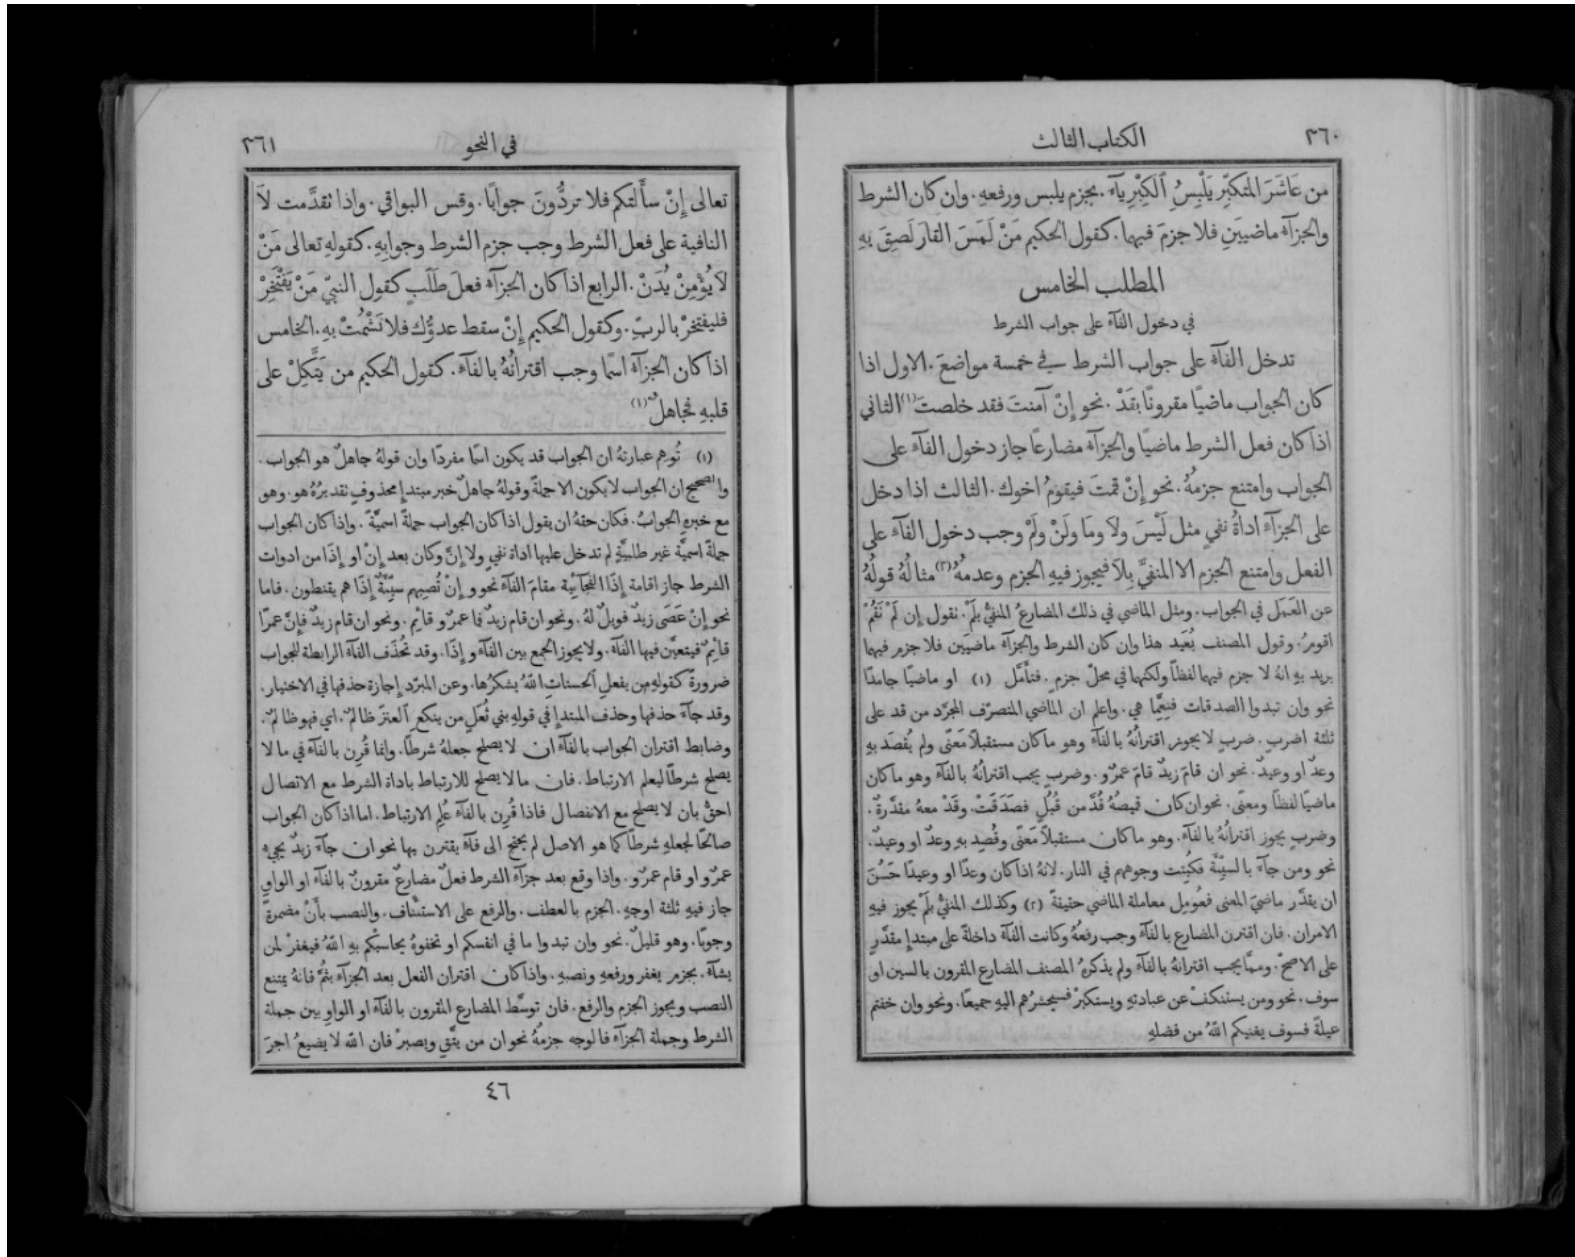 ٣٦٠
الكتاب الثالث
من عَاشَرَ المتكبِّر يَلْبِسُ ٱلْكِبْرِيآءَ. بجزم يلبس ورفعهِ. وان كان الشرط
والجزآءُ ماضيَينِ فلا جزمَ فيهما. كقول الحكيم مَنْ لَمَسَ القارَ لَصِقَ بهِ
المطلب الخامس
في دخول الفآء على جواب الشرط
تدخل الفآءُ على جواب الشرط في خمسة مواضعَ. الاول اذا
كان الجواب ماضيًا مقرونًا بقَدْ. نحو إنْ آمنتَ فقد خلصتَ (١) الثاني
اذا كان فعل الشرط ماضيًا والجزآءُ مضارعًا جاز دخول الفآءِ على
الجواب وامتنع جزمهُ. نحو إنْ قمتَ فيقومُ اخوك. الثالث اذا دخل
على الجزآءِ اداةُ نفيٍ مثل لَيْسَ ولَا ومَا ولَنْ ولَمْ وجب دخول الفآءِ على
الفعل وامتنع الجزم الا المنفيَّ بِلَا فيجوز فيهِ الجزم وعدمهُ (٢) مثالُهُ قولُهُ
عن العَمَل في الجواب. ومثل الماضي في ذلك المضارعُ المنفيُّ بلَمْ. نقول إن لَمْ نَقُمْ
اقومُ. وقول المصنف بُعَيد هذا وان كان الشرط والجزآءُ ماضيَين فلا جزم فيهما
يريد بهِ انهُ لا جزم فيهما لفظًا ولكنهما في محلّ جزمٍ. فتأمَّل (١) او ماضيًا جامدًا
نحو وان تبدوا الصدقات فنِعِمَّا هي. واعلم ان الماضي المتصرّف المجرَّد من قد على
ثلثة اضربٍ. ضربٍ لا يجوز اقترانُهُ بالفآءِ وهو ما كان مستقبلًا مَعنًى ولم يُقصَد بهِ
وعدٌ او وعيدٌ. نحو ان قامَ زيدٌ قامَ عمرٌو. وضربٍ يجب اقترانُهُ بالفآءِ وهو ما كان
ماضيًا لفظًا ومعنًى. نحو ان كان قميصُهُ قُدَّ من قُبُلٍ فصَدَقَتْ. وقَدْ معهُ مقدَّرةٌ.
وضربٍ يجوز اقترانُهُ بالفآءِ. وهو ما كان مستقبلًا مَعنًى وقُصِد بهِ وعدٌ او وعيدٌ.
نحو ومن جآءَ بالسيِّئَة فكُبَّت وجوههم في النار. لانهُ اذا كان وعدًا او وعيدًا حَسُنَ
ان يقدَّر ماضيَ المعنى فعُومِل معاملة الماضي حقيقةً (٢) وكذلك المنفيُّ بلَمْ يجوز فيهِ
الامران. فان اقترن المضارع بالفآءِ وجب رفعهُ وكانت الفآءُ داخلةً على مبتدإٍ مقدَّرٍ
على الاصحّ. وممَّا يجب اقترانهُ بالفآءِ ولم يذكرهُ المصنف المضارع المقرون بالسين او
سوف. نحو ومن يستنكفْ عن عبادتهِ ويستكبرْ فسيحشرُهم اليهِ جميعًا. ونحو وان خفتم
عيلةً فسوف يغنيكم اللّٰهُ من فضلهِ
في النحو
٣٦١
تعالى إنْ سأَلتكم فلا تردُّونَ جوابًا. وقس البواقي. واذا تقدَّمت لَا
النافية على فعل الشرط وجب جزم الشرط وجوابهِ. كقولهِ تعالى مَنْ
لَا يُؤْمِنْ يُدَنْ. الرابع اذا كان الجزآءُ فعلَ طَلَبٍ كقول النبيّ مَنْ يَفْتَخِرْ
فليفتخرْ بالربّ. وكقول الحكيم إنْ سقط عدوُّك فلا تَشْمُتْ بهِ. الخامس
اذا كان الجزآءُ اسمًا وجب اقترانُهُ بالفآءِ. كقول الحكيم من يَتَّكِلْ على
قلبهِ فجاهلٌ (١)
(١) تُوهِم عبارتهُ ان الجواب قد يكون اسمًا مفردًا وان قولهُ جاهلٌ هو الجواب.
والصحيح ان الجواب لا يكون الا جملةً وقولهُ جاهلٌ خبر مبتدإٍ محذوفٍ تقديرُهُ هو. وهو
مع خبرهِ الجوابُ. فكان حقهُ ان يقول اذا كان الجواب جملةً اسميَّةً. واذا كان الجواب
جملةً اسميَّة غير طلبيَّةٍ لم تدخل عليها اداة نفيٍ ولا إِنَّ وكان بعد إِنْ او إِذَا من ادوات
الشرط جاز اقامة إِذَا الفجآئيَّة مقامَ الفآءِ نحو وإِنْ تُصِبهم سيِّئَةٌ إِذَا هم يقنطون. فاما
نحو إِنْ عَصَى زيدٌ فويلٌ لهُ. ونحو ان قام زيدٌ فما عمرٌو قائِم. ونحو ان قام زيدٌ فإِنَّ عمرًا
قائِمٌ فيتعيَّن فيها الفآءُ. ولا يجوز الجمع بين الفآءِ وإِذَا. وقد تُحذَف الفآءُ الرابطة للجواب
ضرورةً كقولهِ من يفعلِ ٱلحسناتِ اللّٰهُ يشكرُها. وعن المبرّد إجازة حذفها في الاختيار.
وقد جآءَ حذفها وحذف المبتدإِ في قولهِ بني ثُعَلٍ من ينكعِ ٱلعنزَ ظالمٌ. اي فهو ظالمٌ.
وضابط اقتران الجواب بالفآءِ ان لا يصلح جعلهُ شرطًا. وانما قُرِن بالفآءِ في ما لا
يصلح شرطًا ليعلم الارتباط. فان ما لا يصلح للارتباط باداة الشرط مع الاتصال
احقُّ بان لا يصلح مع الانفصال فاذا قُرِن بالفآءِ عُلِم الارتباط. اما اذا كان الجواب
صالحًا لجعلهِ شرطًا كما هو الاصل لم يحتج الى فآءٍ يقترن بها نحو ان جآءَ زيدٌ يجيءُ
عمرٌو او قام عمرٌو. واذا وقع بعد جزآءِ الشرط فعلٌ مضارعٌ مقرونٌ بالفآءِ او الواو
جاز فيهِ ثلثة اوجهٍ. الجزم بالعطف. والرفع على الاستئناف. والنصب بأَنْ مضمرةً
وجوبًا. وهو قليلٌ. نحو وان تبدوا ما في انفسكم او تخفوهُ يحاسبْكم بهِ اللّٰهُ فيغفرْ لمن
يشآءُ. بجزم يغفر ورفعهِ ونصبهِ. واذا كان اقتران الفعل بعد الجزآءِ بثُمَّ فانهُ يمتنع
النصب ويجوز الجزم والرفع. فان توسَّط المضارع المقرون بالفآءِ او الواو بين جملة
الشرط وجملة الجزآءِ فالوجه جزمهُ نحو ان من يتَّقِ ويصبرْ فان اللّٰه لا يضيعُ اجرَ
٤٦